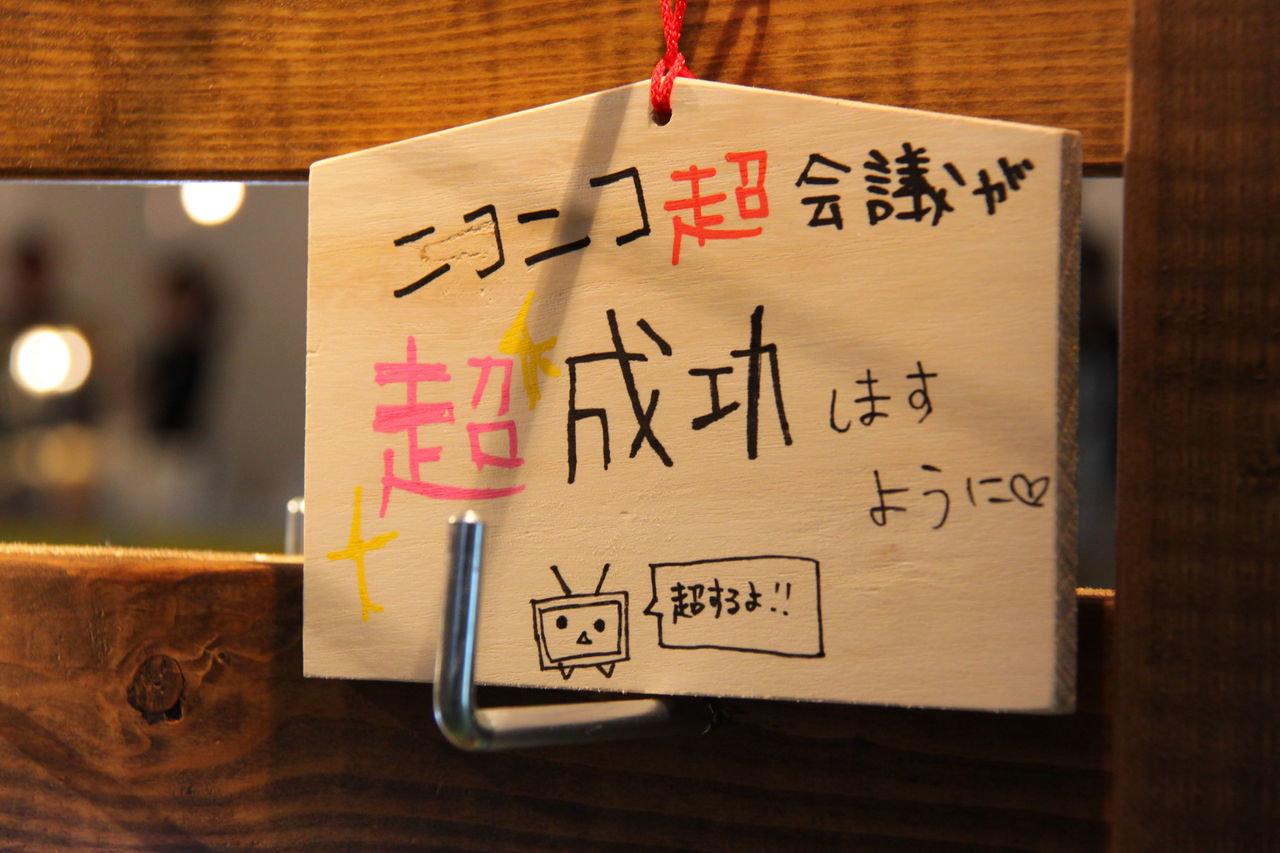 ニコニコ超会議が
超成功します
ように♡
超するよ!!